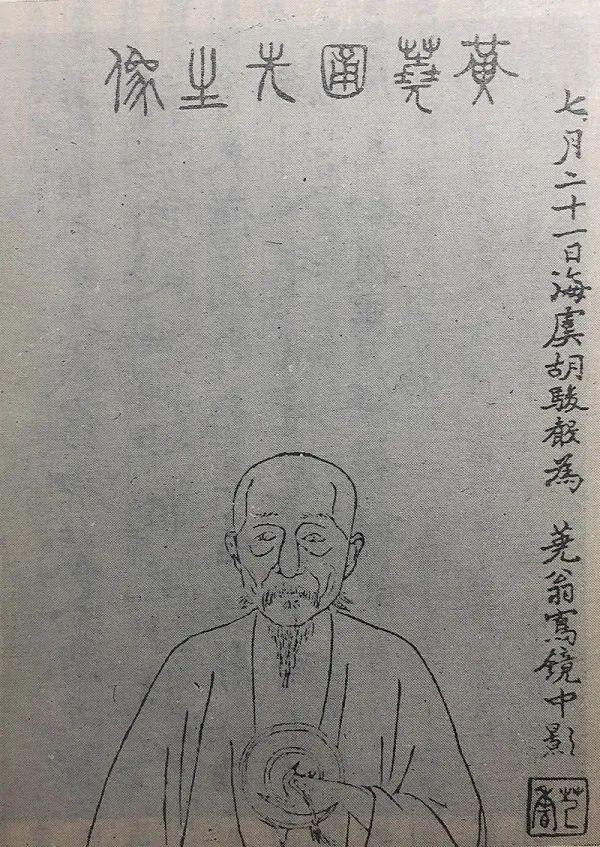 黃蕘圃先生像
七月二十一日海虞胡駿聲為 蕘翁寫鏡中影
芑香